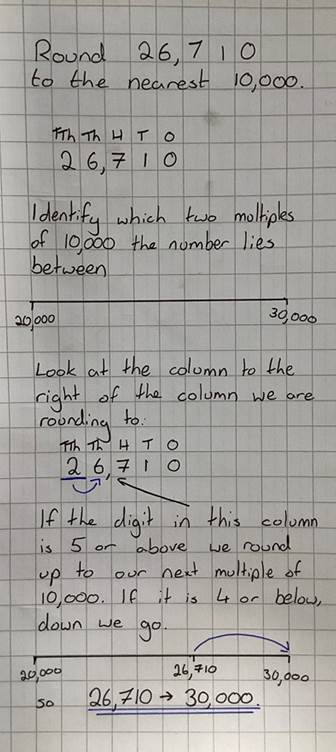 Round 26,710
to the nearest 10,000.
TTh Th H T O
2 6,7 1 0
Identify which two multiples
of 10,000 the number lies
between
20,000 30,000
Look at the column to the
right of the column we are
rounding to:
TTh Th H T O
2 6,7 1 0
If the digit in this column
is 5 or above we round
up to our next multiple of
10,000. If it is 4 or below,
down we go.
20,000 26,710 30,000
so 26,710 → 30,000.